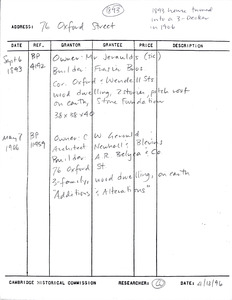 1893
1893 house turned
into a 3-decker
in 1906
ADDRESS: 76 Oxford Street
DATE REF. GRANTOR GRANTEE PRICE DESCRIPTION
Sept 6 BP Owner: Mr Jerauld's (sic)
1893 4192 Builder:
Cor. Oxford + Wendell Sts
wood dwelling, 2 story, pitch roof
on earth, Stone Foundation
38 x 28 x 40
May 7 BP Owner: C W Gerould
1906 Architect Newhall & Blevins
Builder A.R. Belyea & Co
76 Oxford St
3-family, wood dwelling, on earth
"Additions & Alterations"
CAMBRIDGE HISTORICAL COMMISSION RESEARCHER: DATE: